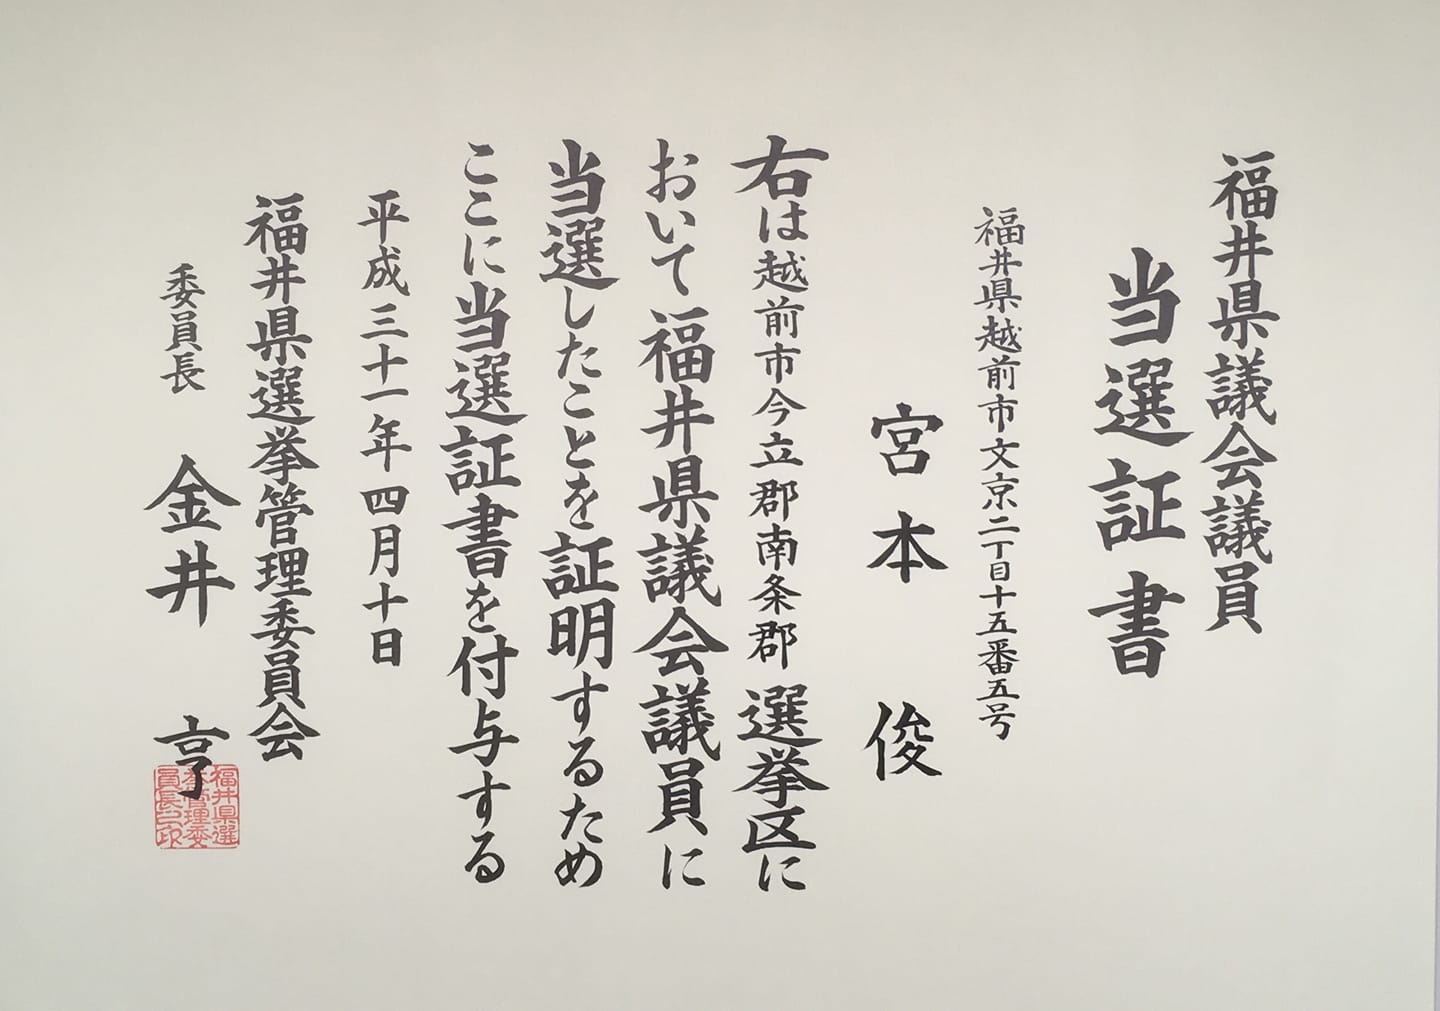 福井県議会議員
当選証書
福井県越前市文京二丁目十五番五号
宮本俊
右は越前市今立郡南条郡選挙区に
おいて福井県議会議員に
当選したことを証明するため
ここに当選証書を付与する
平成三十一年四月十日
福井県選挙管理委員会
委員長 金井亨
福井県選
挙管理委
員長之印